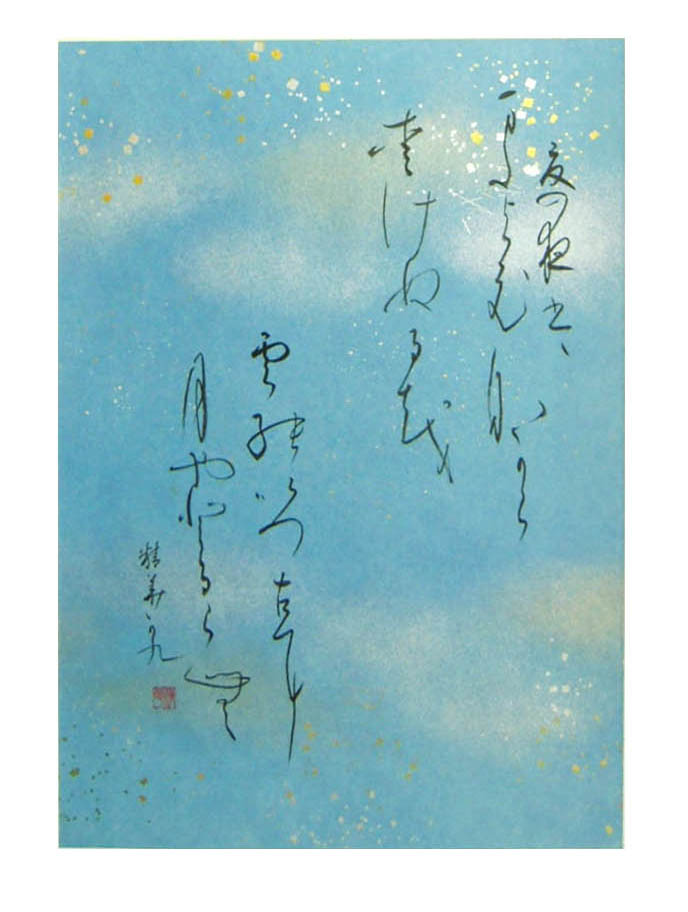 夏の夜は
またよひなから
あけぬるを
雲のいつこに
月やとるらむ